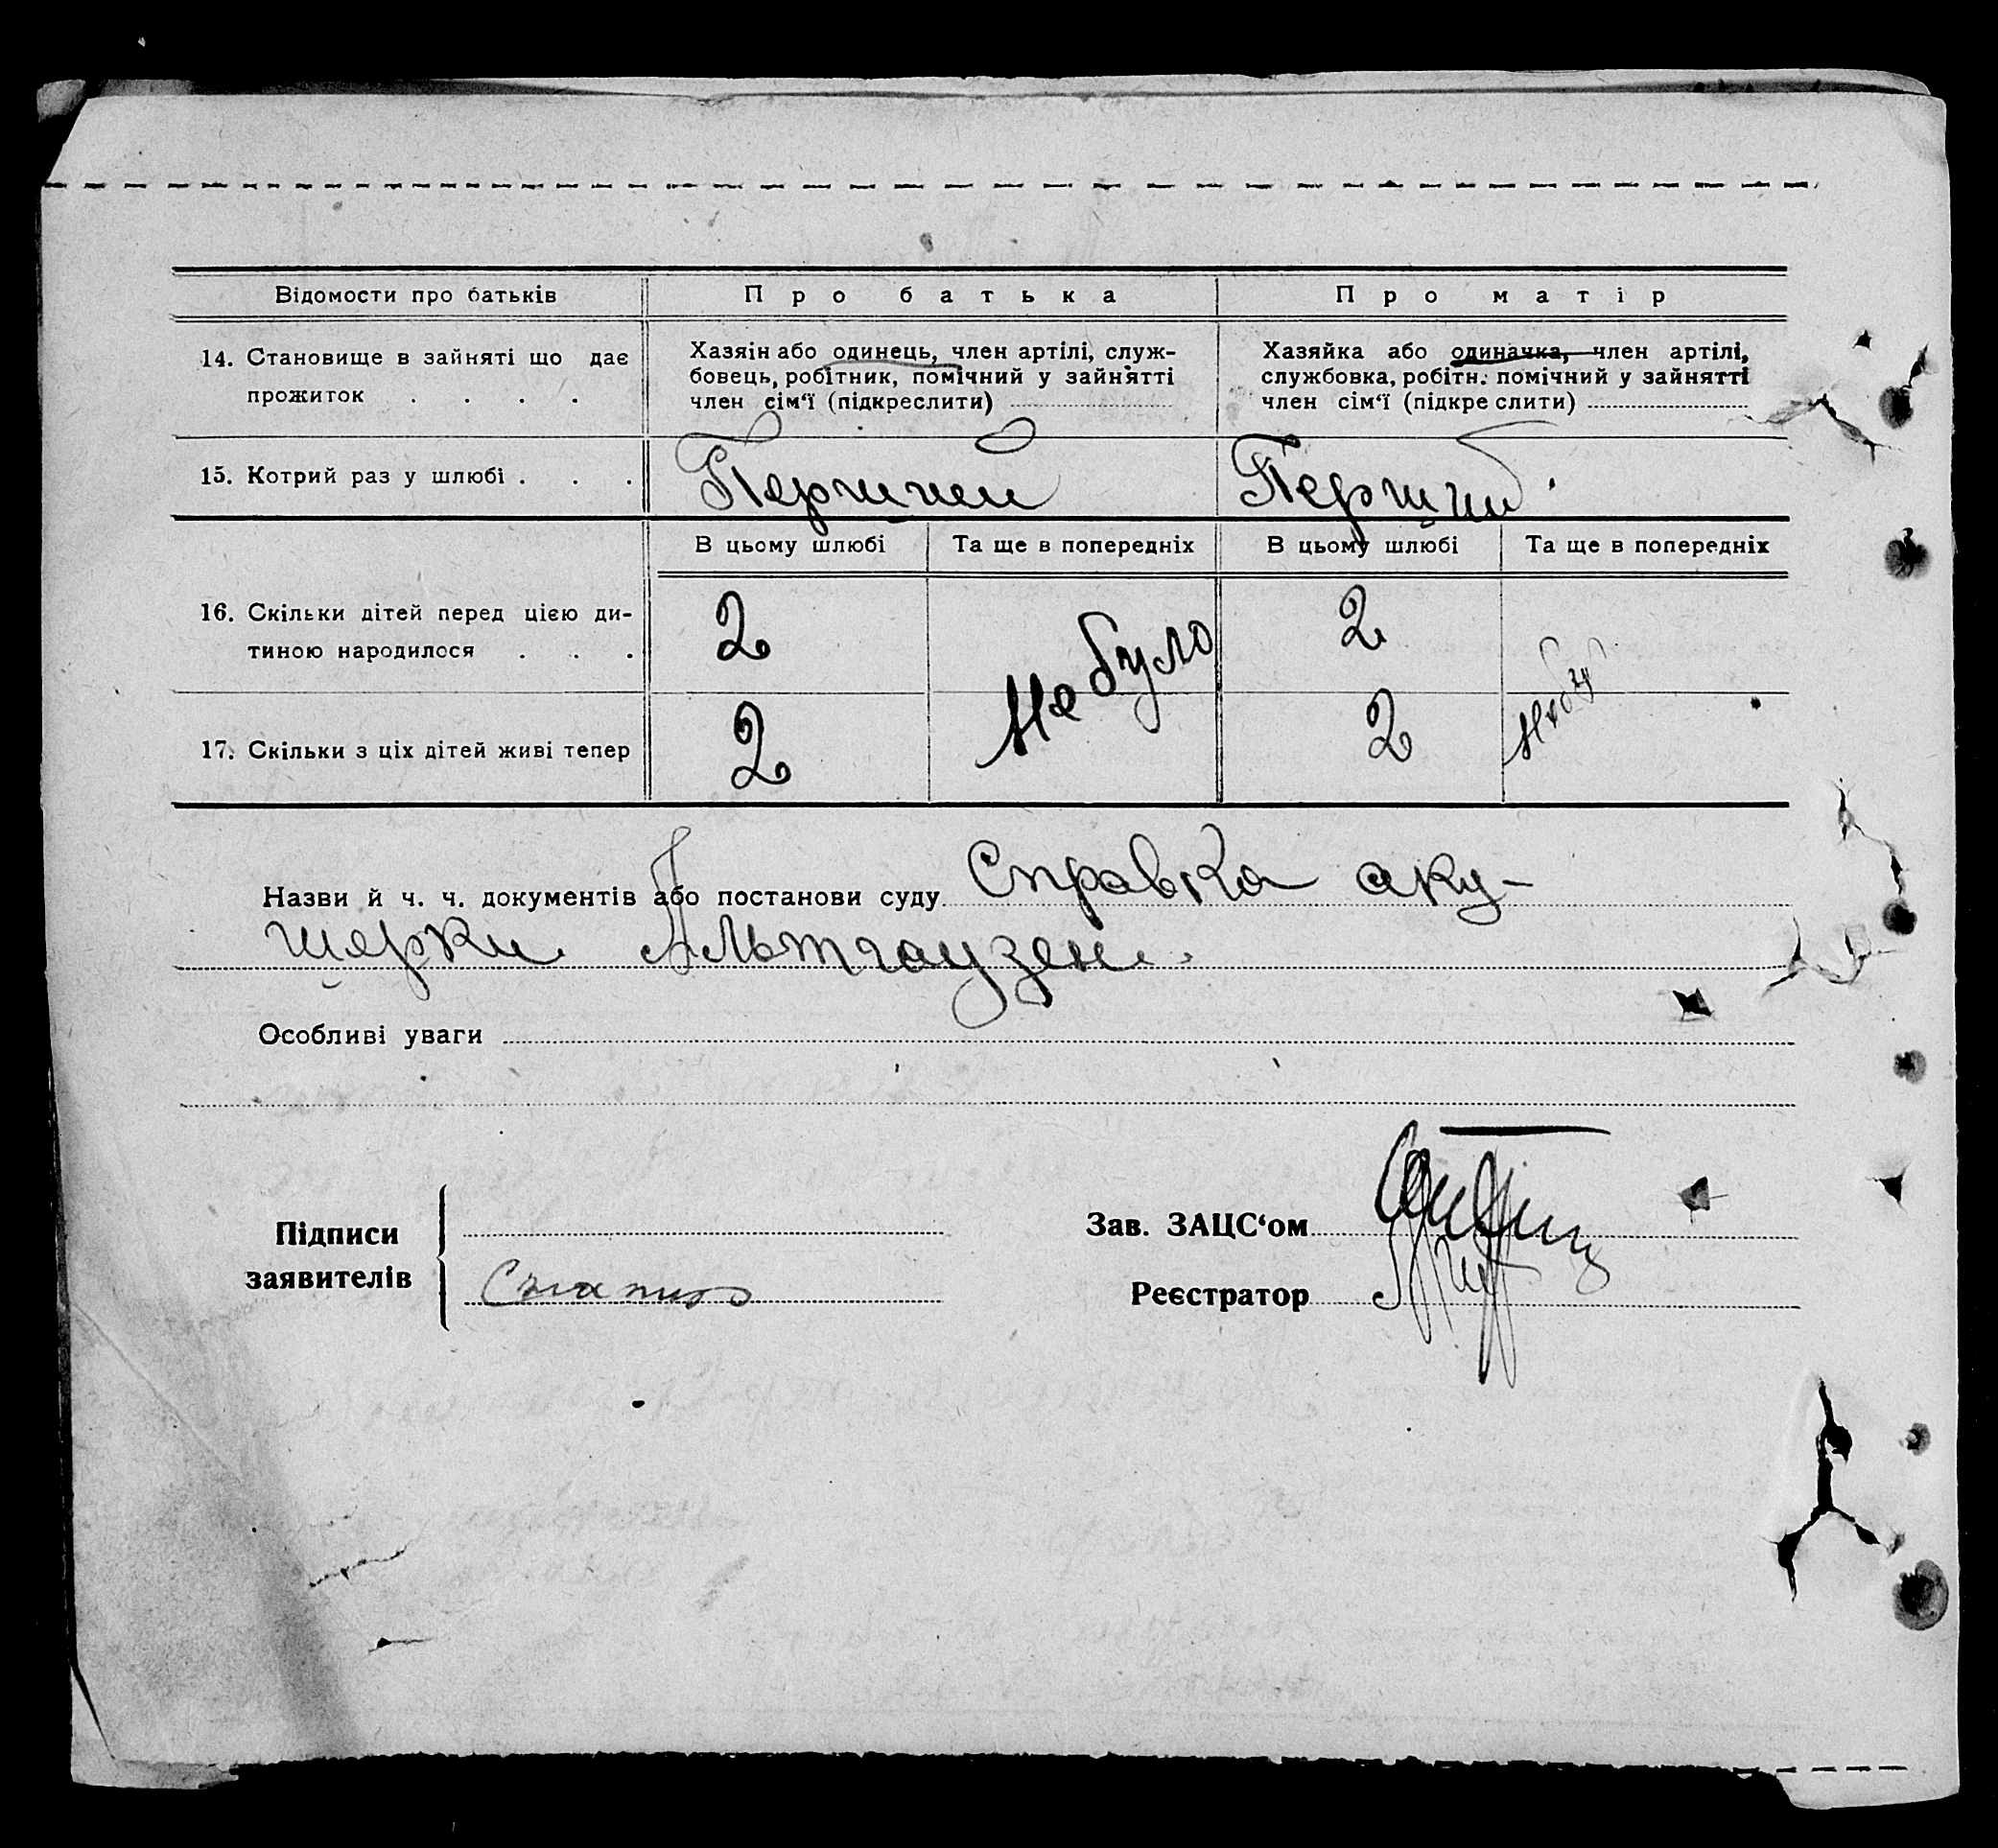 Відомости про батьків
Про батька
Про матір
14. Становище в зайняті що дає
прожиток . . . .
Хазяін або одинець, член артілі, служ-
бовець, робітник, помічний у зайнятті
член сім‘ї (підкреслити)
Хазяйка або одиначка, член артілі,
службовка, робітн. помічний у зайнятті
член сім‘ї (підкреслити)
15. Котрий раз у шлюбі . . .
Перший
Перший
В цьому шлюбі
Та ще в попередніх
В цьому шлюбі
Та ще в попередніх
16. Скільки дітей перед цією ди-
тиною народилося . . .
2
не було
2
17. Скільки з ціх дітей живі тепер
2
2
Назви й ч. ч. документів або постанови суду Справка аку-
шерки Альтгаузен.
Особливі уваги
Підписи
заявителів
Зав. ЗАЦС‘ом
Реєстратор